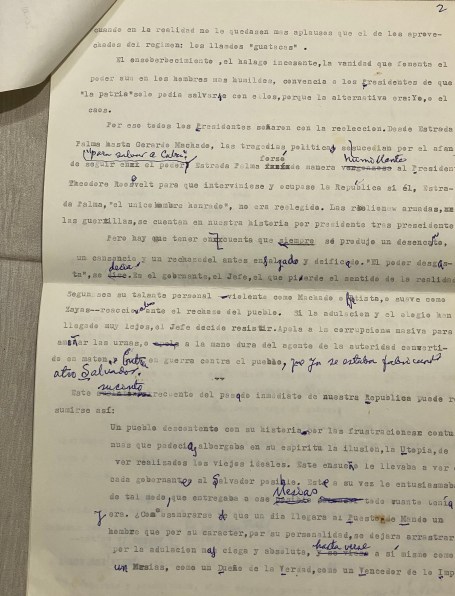 2
cuando en la realidad no le quedasen mas aplausos que el de los aprove-
chados del regimen: los llamados "guatacas" .
El ensoberbecimiento ,el halago incesante,la vanidad que fomenta el
poder aun en los hombres mas humildes, convencia a los Presidentes de que
"la patria"solo podia salvarse con ellos,porque la alternativa era:Yo,o el
caos.
Por eso todos los Presidentes soñaron con la reeleccion.Desde Estrada
Palma hasta Gerardo Machado, las tragedias politicas se sucedian por el afan
("para salvar a Cuba")
de seguir en el poder. Estrada Palma forzó de manera humillante al President
Theodore Roosvelt para que interviniese y ocupase la Republica si él, Estra-
da Palma, "el unico hombre honrado", no era reelegido. Las rebeliones armadas,
las guerrillas, se cuentan en nuestra historia por presidente tras presidente
Pero hay que tener en cuenta que siempre se produjo un desencanto,
un cansancio y un rechazo del antes endiosado y deificado. "El poder desgas-
ta", se decia. En el gobernante, el Jefe, el que pierde el sentido de la realidad
Segun sea su talante personal -violento como Machado o Batista, o suave como
Zayas--reacciona ante el rechazo del pueblo. Si la adulacion y el elogio han
llegado muy lejos, el Jefe decide resistir. Apela a la corrupcion masiva para
las urnas, o a la mano dura del agente de la autoridad converti-
do en maton. Contra en guerra contra el pueblo, que ya se estaba fabricando
otro Salvador.
Este sucinto recuento del pasado inmediato de nuestra Republica puede re
sumirse asi:
Un pueblo descontento con su historia por las frustraciones conti
nuas que padecia, albergaba en su espiritu la ilusion, la Utopia, de
ver realizados los viejos ideales. Este ensueño le llevaba a ver e
cada gobernante el Salvador posible. Este a su vez le entusiasmaba
de tal modo, que entregaba a ese Mesias todo cuanto tenia
y era. asombrarse de que un dia llegara al Puesto de Mando un
hombre que por su caracter, por su personalidad, se dejara arrastrar
por la adulacion mas ciega y absoluta, hasta verse a si mismo como
un Mesias, como un Dueño de la Verdad, como un Vencedor de la Imp